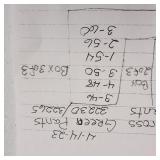 4-14-23
ross
Pants
Green Pants
32230/32265
3-46
4-48
3-50
1-54
2-56
3-60
Box
2 of 3
Box 3 of 3